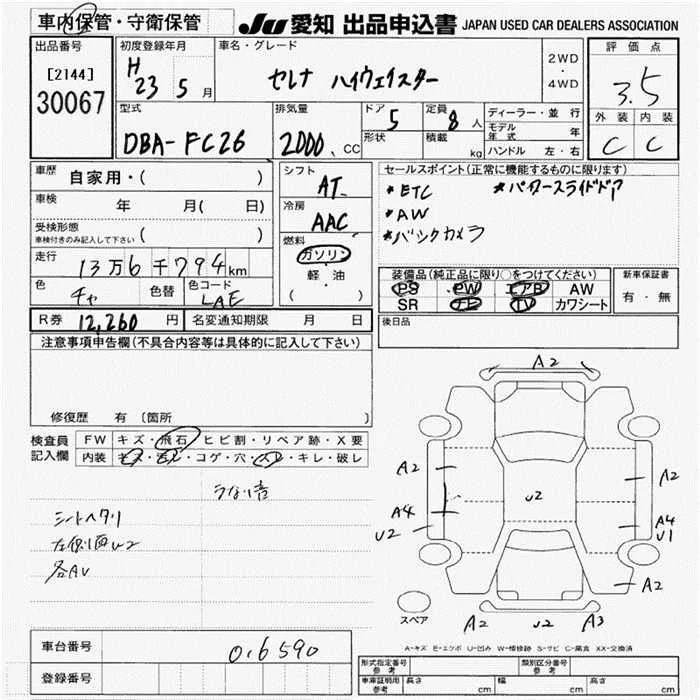 車内保管・守衛保管
JU 愛知 出品申込書 JAPAN USED CAR DEALERS ASSOCIATION
出品番号
[2144]
30067
初度登録年月
H 23 5 月
車名・グレード
セレナ ハイウェイスター
2WD
・
4WD
評価点
3.5
外装 内装
C C
型式
DBA-FC26
排気量
2000、CC
ドア 5
形状
定員 8 人
積載 kg
ディーラー・並行
モデル年式 年
ハンドル 左・右
車歴
自家用・( )
車検 年 月( 日)
受検形態
車検付きのみ記入して下さい ( )
走行 13万6千794km
色 チャ 色替 色コード LAE
シフト
AT
冷房
AAC
燃料
ガソリン
・
軽・油
( )
セールスポイント(正常に機能するものに限ります)
*ETC *パワースライドドア
*AW
*バックカメラ
装備品(純正品に限り○をつけてください)
PS PW エアB AW
SR TV カワシート
新車保証書
有・無
R券 12,260 円 名変通知期限 月 日
後日品
注意事項申告欄(不具合内容等は具体的に記入して下さい)
修復歴 有 〔箇所 〕
検査員記入欄
FW キズ・飛石・ヒビ割・リペア跡・X要
内装 キズ・汚レ・コゲ・穴・スレ・キレ・破レ
うなり音
シートヘタリ
左側面U2
各AU
A2
A2
A2
A4
U2
U2
A4
U1
A2
A2 U2 A3
スペア
A-キズ E-エクボ U-凹み W-補修跡 S-サビ C-腐食 XX-交換済
車台番号 016590
登録番号
形式指定番号
参考
類別区分番号
参考
車庫証明用
参考
長さ cm 幅 cm 高さ cm